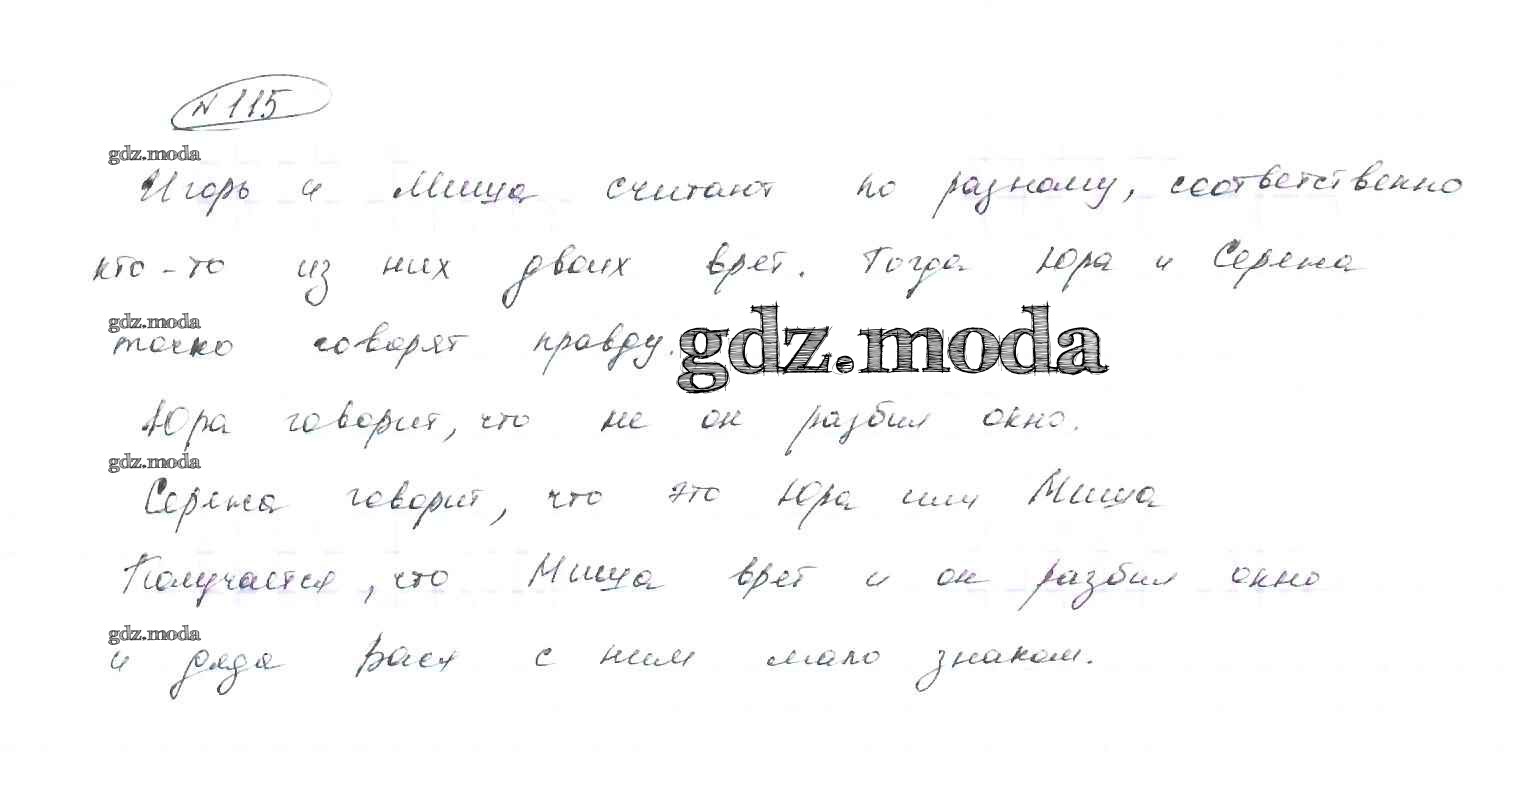 № 115
gdz.moda
Игорь и Миша считают по разному, соответственно
кто-то из них двоих врет. Тогда Юра и Сережа
gdz.moda
точно говорят правду.
gdz.moda
Юра говорит, что не он разбил окно.
gdz.moda
Сережа говорит, что это Юра или Миша
Получается, что Миша врет и он разбил окно
gdz.moda
и дядя Вася с ним мало знаком.